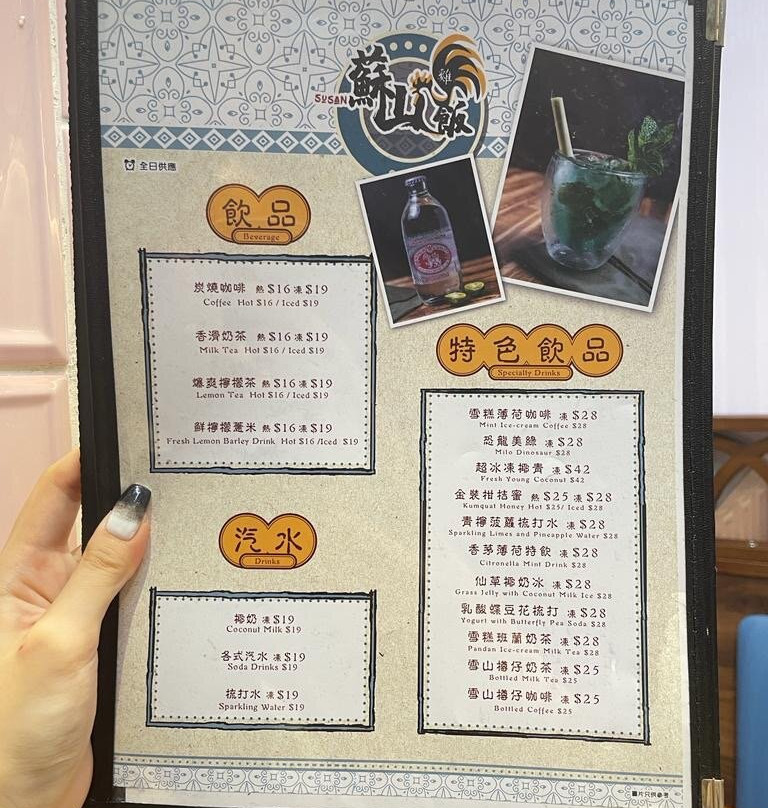 SUSAN 蘇山雞飯
全日供應
飲品
Beverage
炭燒咖啡 熱 $16 凍 $19
Coffee Hot $16 / Iced $19
香滑奶茶 熱 $16 凍 $19
Milk Tea Hot $16 / Iced $19
爆爽檸檬茶 熱 $16 凍 $19
Lemon Tea Hot $16 / Iced $19
鮮檸檬薏米 熱 $16 凍 $19
Fresh Lemon Barley Drink Hot $16 /Iced $19
汽水
Drinks
椰奶 凍 $19
Coconut Milk $19
各式汽水 凍 $19
Soda Drinks $19
梳打水 凍 $19
Sparkling Water $19
特色飲品
Specialty Drinks
雪糕薄荷咖啡 凍 $28
Mint Ice-cream Coffee $28
恐龍美綠 凍 $28
Milo Dinosaur $28
超冰凍椰青 凍 $42
Fresh Young Coconut $42
金裝柑桔蜜 熱 $25 凍 $28
Kumquat Honey Hot $25/ Iced $28
青檸菠蘿梳打水 凍 $28
Sparkling Limes and Pineapple Water $28
香茅薄荷特飲 凍 $28
Citronella Mint Drink $28
仙草椰奶冰 凍 $28
Grass Jelly with Coconut Milk Ice $28
乳酸蝶豆花梳打 凍 $28
Yogurt with Butterfly Pea Soda $28
雪糕班蘭奶茶 凍 $28
Pandan Ice-cream Milk Tea $28
雪山樽仔奶茶 凍 $25
Bottled Milk Tea $25
雪山樽仔咖啡 凍 $25
Bottled Coffee $25
圖片只供參考